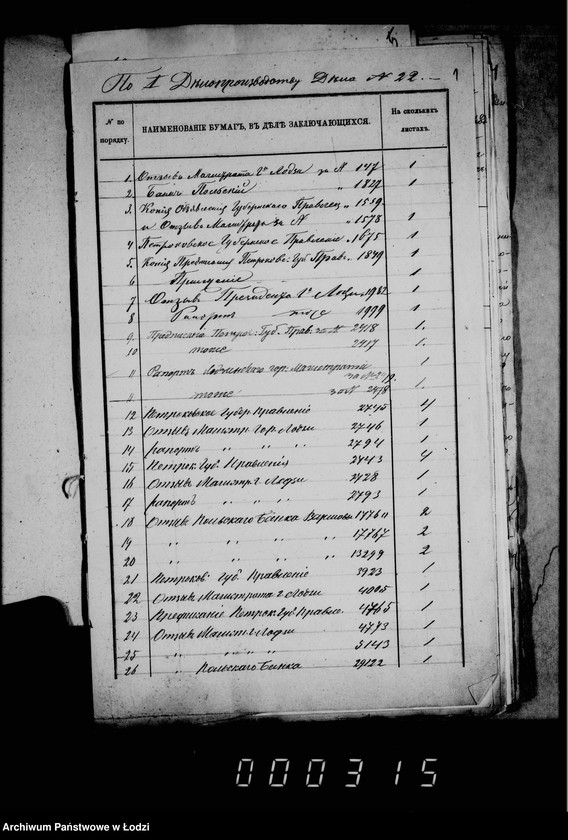 По I Дѣлопроизводству Дѣла № 22. 1
№ по порядку.
НАИМЕНОВАНІЕ БУМАГЪ, ВЪ ДѢЛѢ ЗАКЛЮЧАЮЩИХСЯ.
На сколькихъ листахъ.
1. Отзывъ Магистрата Гᵃ Лодзи за № 147 1
2. Банкъ Польскій " 1827 1
3. Копія Объявленія Губернскаго " 1559
и Отзывъ Магистрата за № " 1578 1
4 Петроковское Губернское Правленіе " 1675 1
5. Копія Предписанія Петроков: Губ Правл. 1849 1
6 1
7 Отзывъ Президента Гᵃ Лодзи 1982 1
8 Рапортъ тоже 1979 1
9. Предписаніе Петрок: Губ. Прав. за № 2418 1.
10 тоже 2417 1.
11 Рапортъ Лодзинскаго гор. Магистрата 1
11 тоже за № 2478 1.
12 Петроковское Губер Правленіе 2745 4
13 Отзывъ Магистр. Гор. Лодзи 2746 1
14 рапортъ " " " 2794 1
15 Петрок. Губ. Правленія 2443 4
16 Отзывъ Магистр. г. Лодзи 2728 1
17 рапортъ " " " 2793 1
18 Отзывъ Польскаго Банка 2
19 " " " " 17767 2
20 " " " " 13299 2
21 Петроков: Губ. Правленіе 3923 1
22 Отзывъ Магистрата г. Лодзи 4005 1
23 Предписаніе Петрок. Губ. Правле. 4765 1
24 Отзывъ Магистр. г. Лодзи 4773 1
25 " " " " 5143 1
26 " Польскаго Банка 29122 1
000315
Archiwum Państwowe w Łodzi